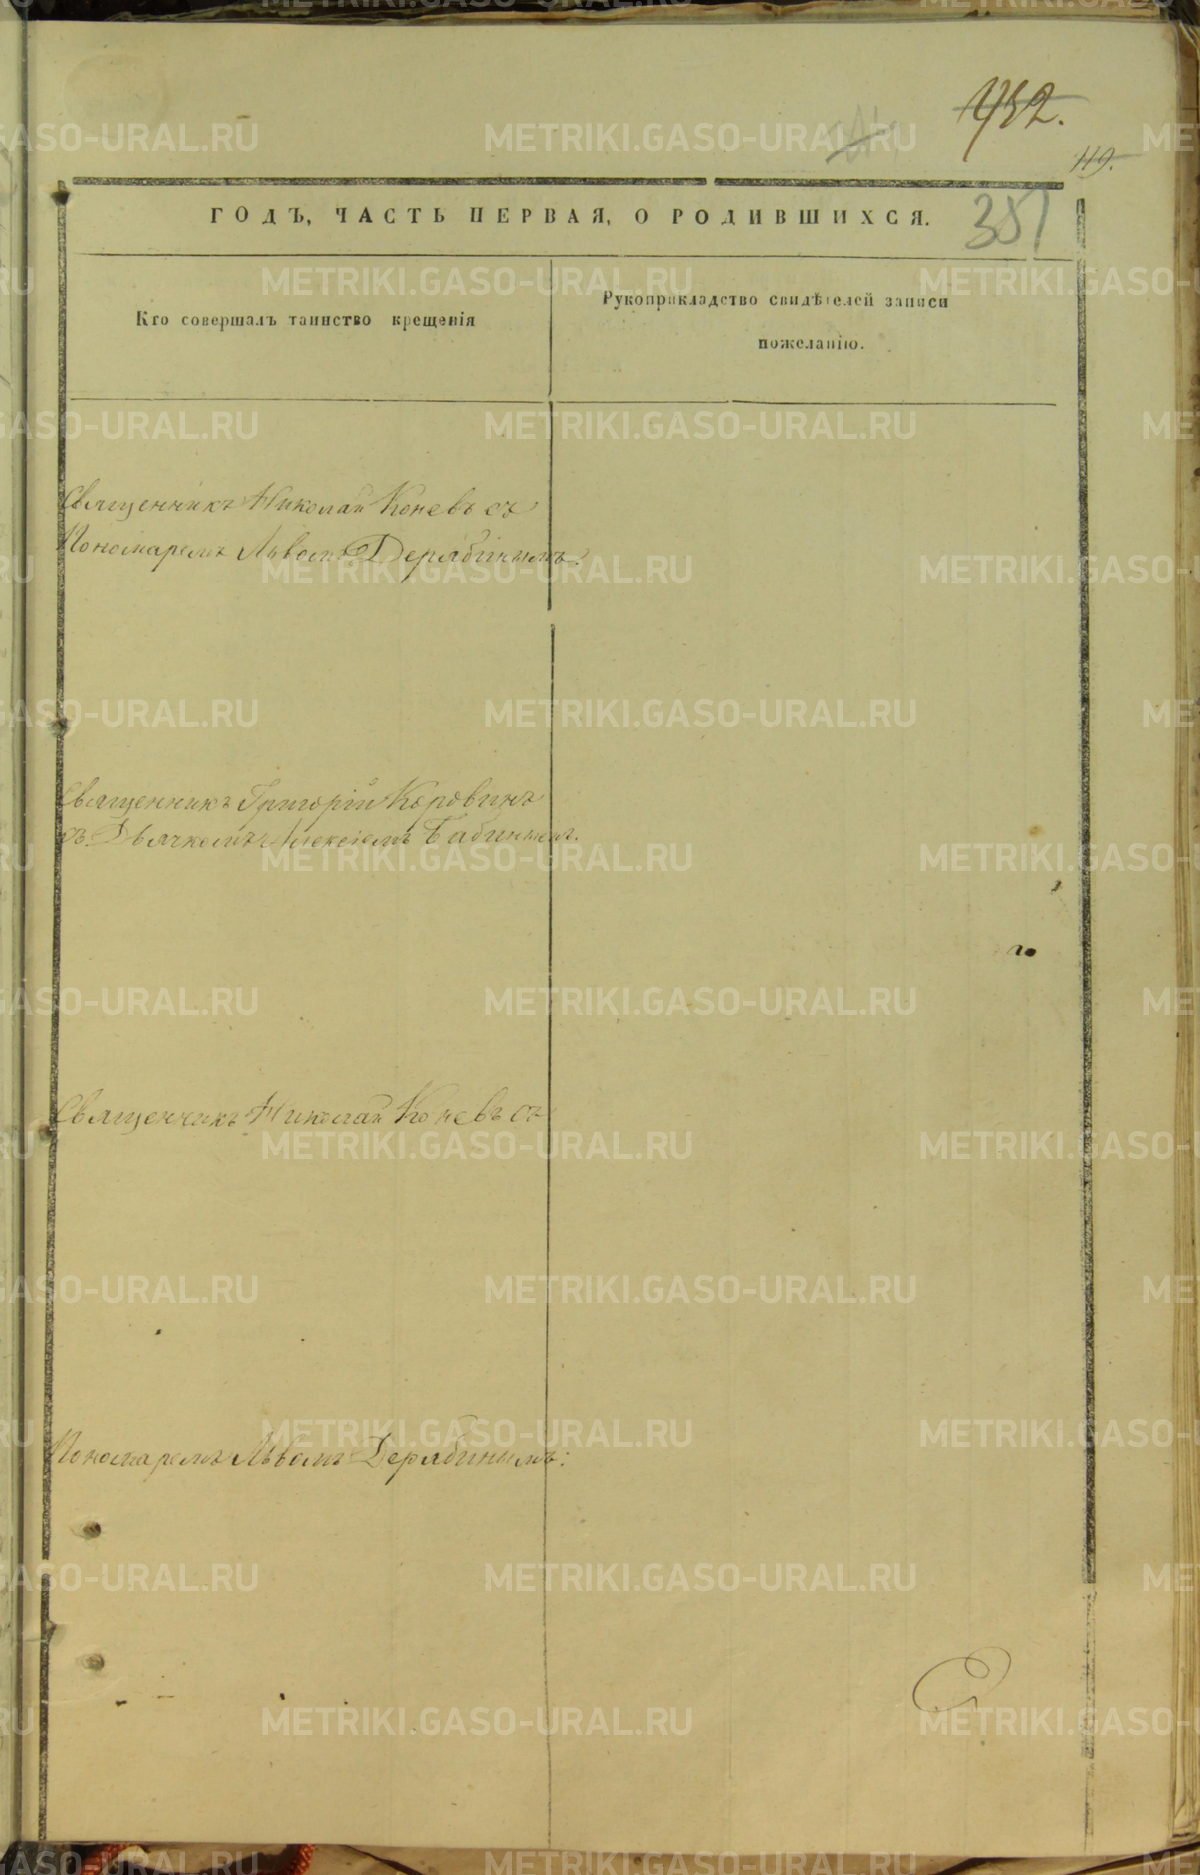 452.
119.
351
ГОДЪ, ЧАСТЬ ПЕРВАЯ, О РОДИВШИХСЯ.
Кто совершалъ таинство крещенія
Рукоприкладство свидѣтелей записи
пожеланію.
Священникъ Николай Коневъ съ
Пономаремъ Львомъ Дерябинымъ.
Священникъ Григорій Коровинъ
съ Дьячкомъ Алексіемъ Бабинымъ.
Священникъ Николай Коневъ съ
Пономаремъ Львомъ Дерябинымъ:
METRIKI.GASO-URAL.RU